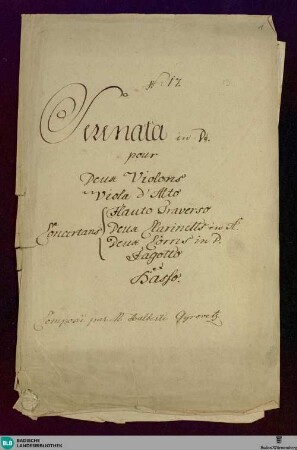 N: 17.
Serenata in D♯.
pour
Deux Violons
Viola d'Alto
Flauto Traverso
Concertans Deux Clarinetts in A.
Deux Corns in D.
Fagotto
et
Basso.
Composé par M. Dalberti Gyrovetz
BLB BADISCHE
LANDESBIBLIOTHEK
Baden-Württemberg